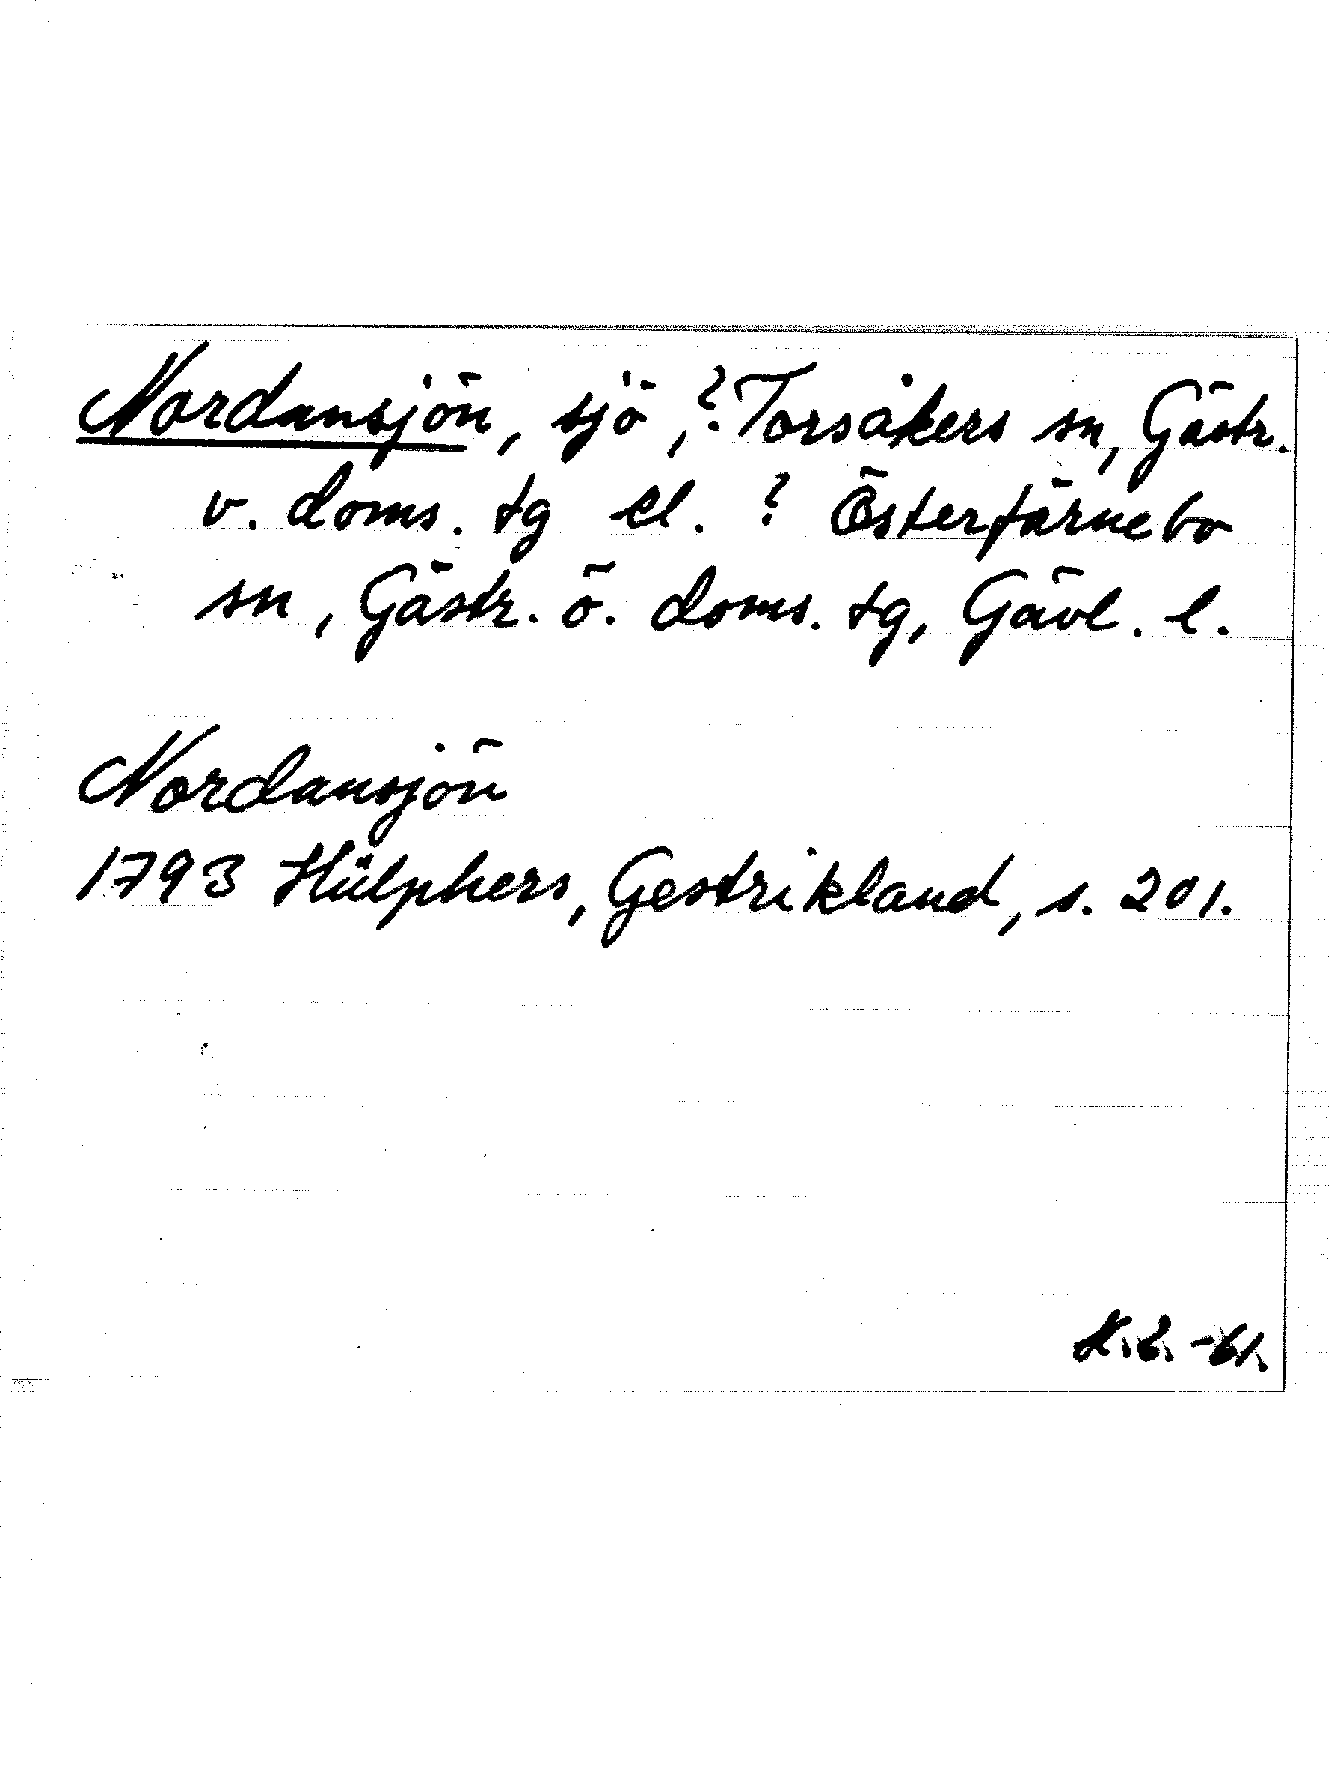 Nordansjön, sjö, ? Torsåkers sn, Gästr.
v. doms. tg el. ? Österfärnebo
sn, Gästr. ö. doms. tg, Gävl. l.
Nordansjön
1793 Hülphers, Gestrikland, s. 201.
-61.